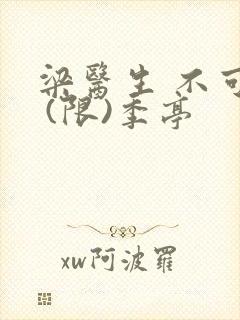 梁醫生 不可
(限)季亭
xw阿波羅